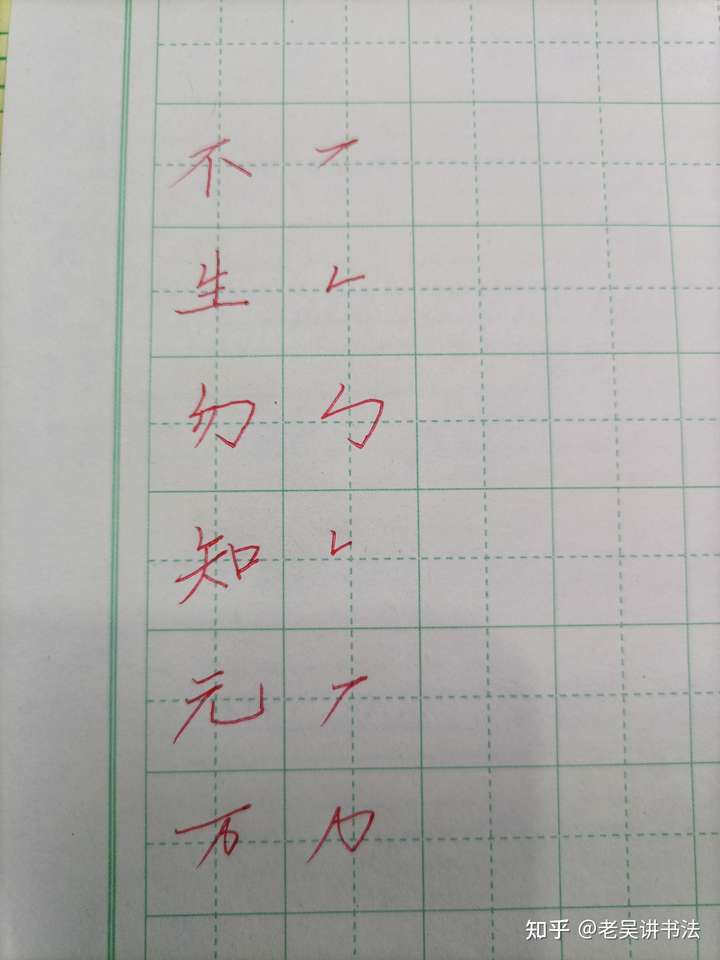 不
生
勿 勹
知
元
万
知乎 @老吴讲书法